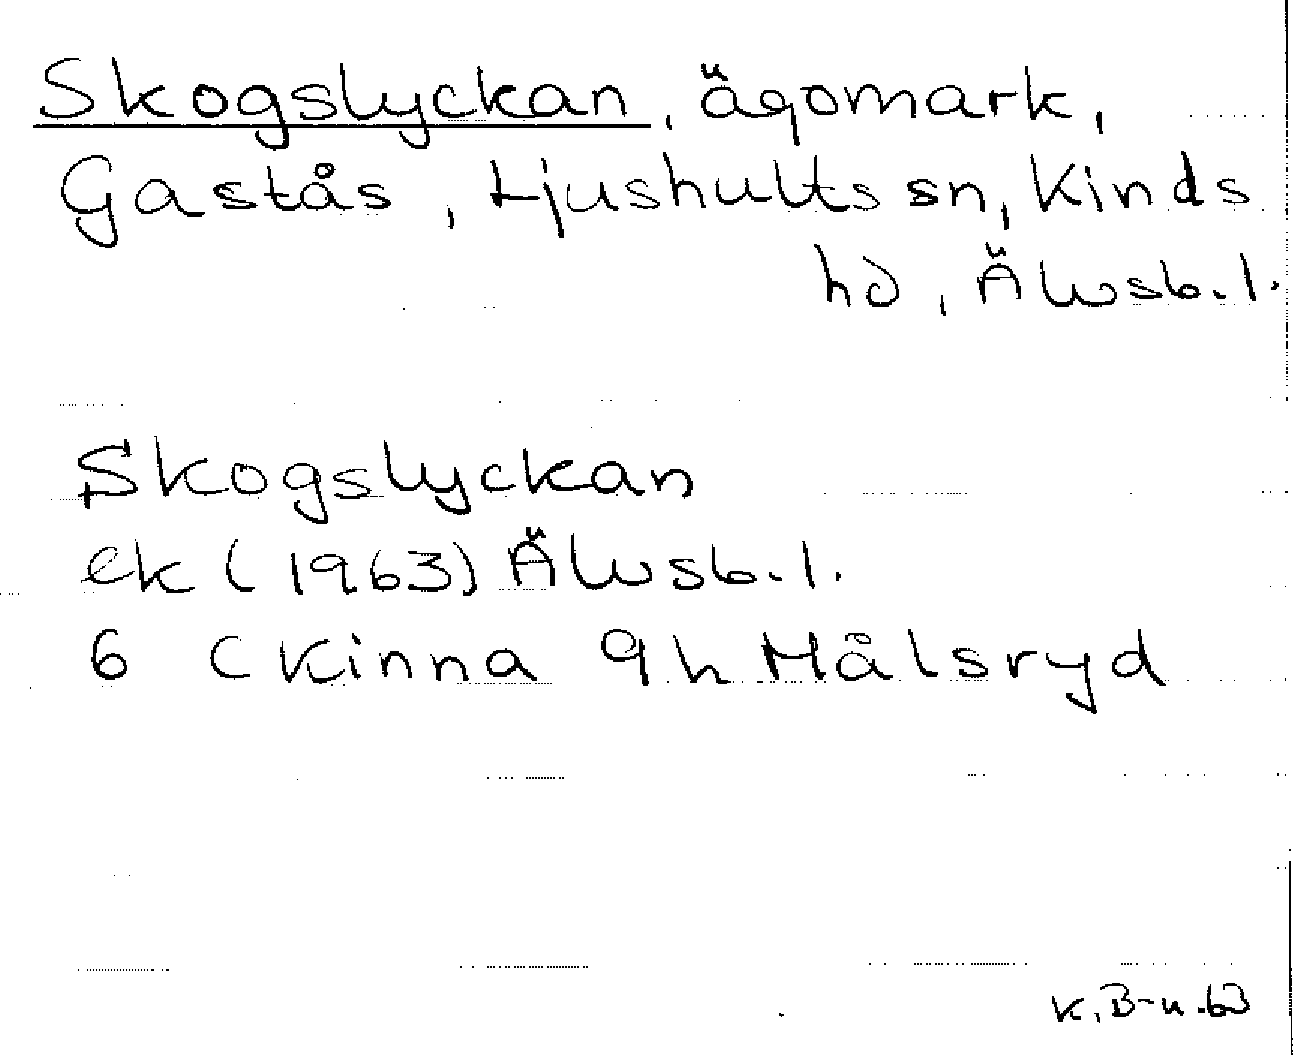 Skogslyckan, ägomark,
Gastås, Ljushults sn, Kinds
hd, Älvsb.l.
Skogslyckan
ek (1963) Älvsb.l.
6 C Kinna 9h Målsryd
K.B-n.63